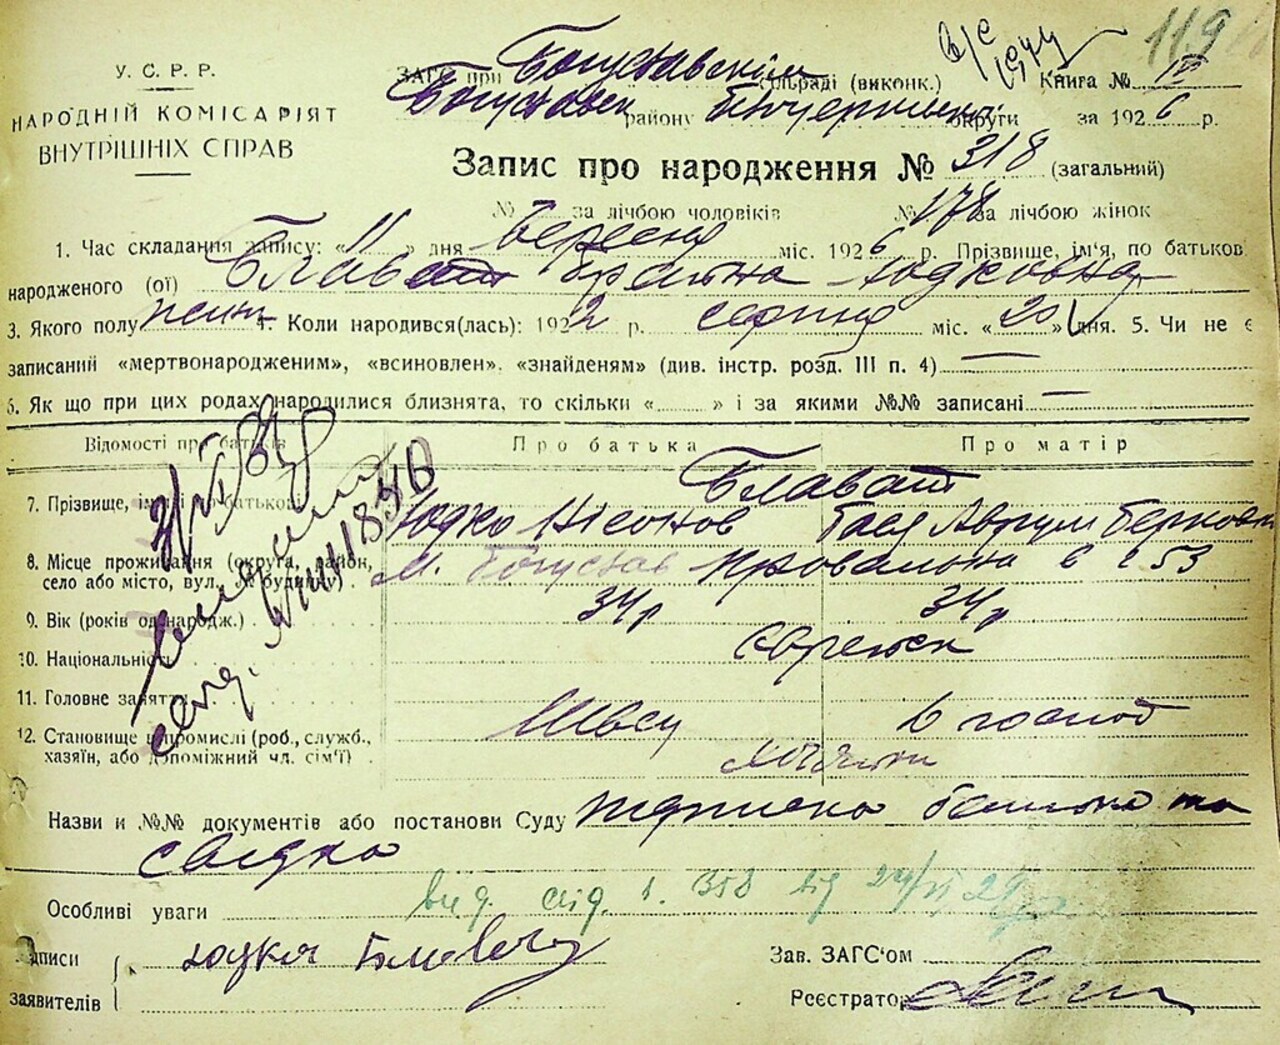 119
У. С. Р. Р.
НАРОДНІЙ КОМІСАРІЯТ
ВНУТРІШНІХ СПРАВ
ЗАГС при Богуславскім сільраді (виконк.) Книга №
Богуславск району округи за 1926 р.
Запис про народження № 318 (загальний)
№ за лічбою чоловіків № 178 за лічбою жінок
1. Час складання запису: «11» дня Вересня міс. 1926 р. Прізвище, ім'я, по батьков
народженого (ої) Блават Юдковна
3. Якого полу жін 4. Коли народився(лась): 1922 р. серпня міс. «20» дня. 5. Чи не є
записаний «мертвонародженим», «всиновлен», «знайденям» (див. інстр. розд. III п. 4)
6. Як що при цих родах народилися близнята, то скільки « » і за якими №№ записані
Відомості про батьків Про батька Про матір
Блават
7. Прізвище, ім'я по батькові Юдко Нісонов Аврум Берковн
8. Місце проживання (округа, район, м. Богуслав Провальна 53
село або місто, вул., № будинку)
9. Вік (років од народж.) 34 р 34 р
10. Національність еврейск
11. Головне заняття
Швец в господ
12. Становище в промислі (роб., служб.,
хазяїн, або допоміжний чл. сім'ї)
Назви и №№ документів або постанови Суду підписка батька та
свідка
Особливі уваги вид. свід. 358 від 24/VI 29
Підписи Юдка Блават Зав. ЗАГС'ом
заявителів Реєстратор